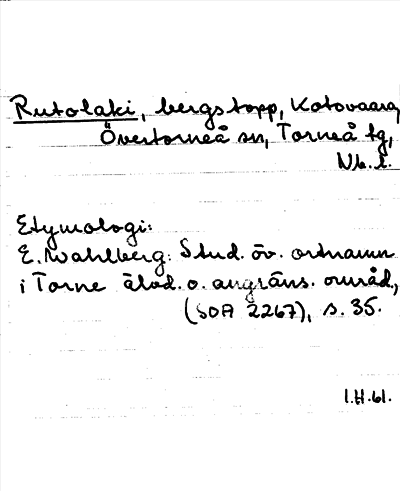 Rutolaki, bergstopp, Kotovaara,
Övertorneå sn, Torneå tg,
Nb. l.
Etymologi:
E. Wahlberg: Stud. öv. ortnamn
i Torne älvd. o. angräns. område,
(SOA 2267), s. 35.
I.H. 61.